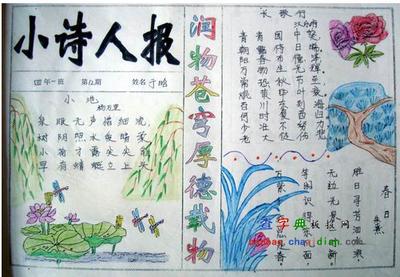 小诗人报
小池
杨万里
泉眼无声惜细流
树阴照水爱晴柔
小荷才露尖尖角
早有蜻蜓立上头
润物苍穹厚德载物
长歌行
青青园中葵
朝露待日晞
阳春布德泽
万物生光辉
常恐秋节至
百川东到海
何时复西归
少壮不努力
老大徒伤悲
春日
朱熹
胜日寻芳泗水滨
无边光景一时新
等闲识得东风面
万紫千红总是春